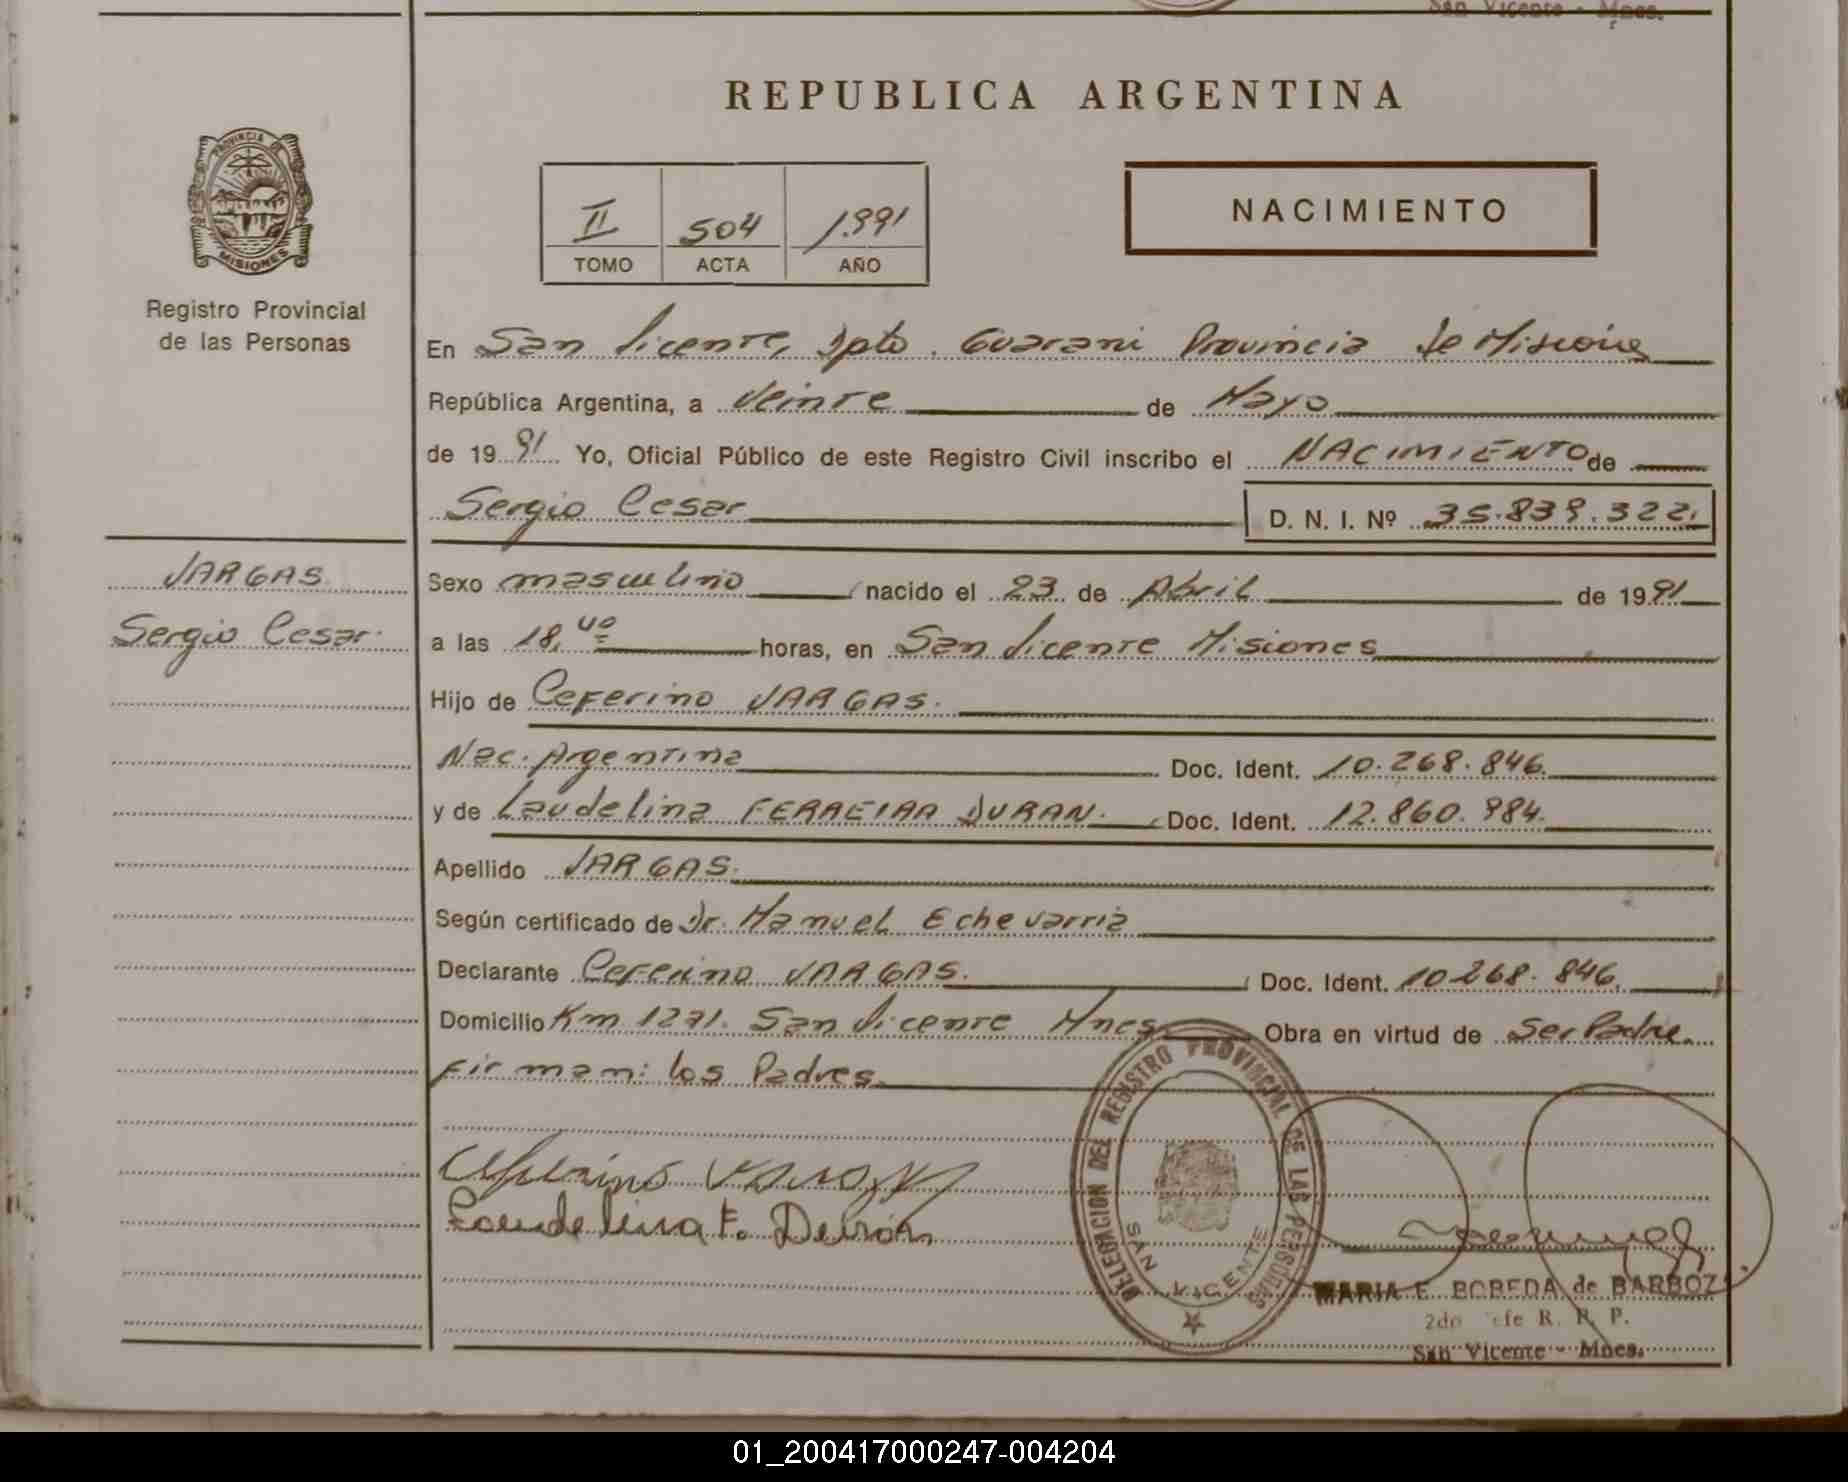 San Vicente - Mnes.
REPUBLICA ARGENTINA
PROVINCIA DE
MISIONES
Registro Provincial
de las Personas
II 504 1.991
TOMO ACTA AÑO
NACIMIENTO
En San Vicente, Dpto. Guarani Provincia de Misiones
República Argentina, a Veinte de Mayo
de 1991 Yo, Oficial Público de este Registro Civil inscribo el NACIMIENTO de
Sergio Cesar D. N. I. Nº 35.839.322.
VARGAS
Sergio Cesar.
Sexo masculino nacido el 23 de Abril de 1991
a las 18, horas, en San Vicente Misiones
Hijo de Ceferino VARGAS.
Nac. Argentina Doc. Ident. 10.268.846.
y de Laudelina FERREIRA DURAN. Doc. Ident. 12.860.984.
Apellido VARGAS.
Según certificado de Dr. Manuel Echevarria
Declarante Ceferino VARGAS. Doc. Ident. 10.268.846.
Domicilio Km 1271. San Vicente Mnes. Obra en virtud de Ser Padre.
Firman: los Padres
Ceferino Vargas
Laudelina F. Durán
DELEGACION DEL REGISTRO PROVINCIAL DE LAS PERSONAS
SAN VICENTE
MARIA E. BOBEDA de BARBOZ
2do Jefe R. P. P.
San Vicente - Mnes.
01_200417000247-004204